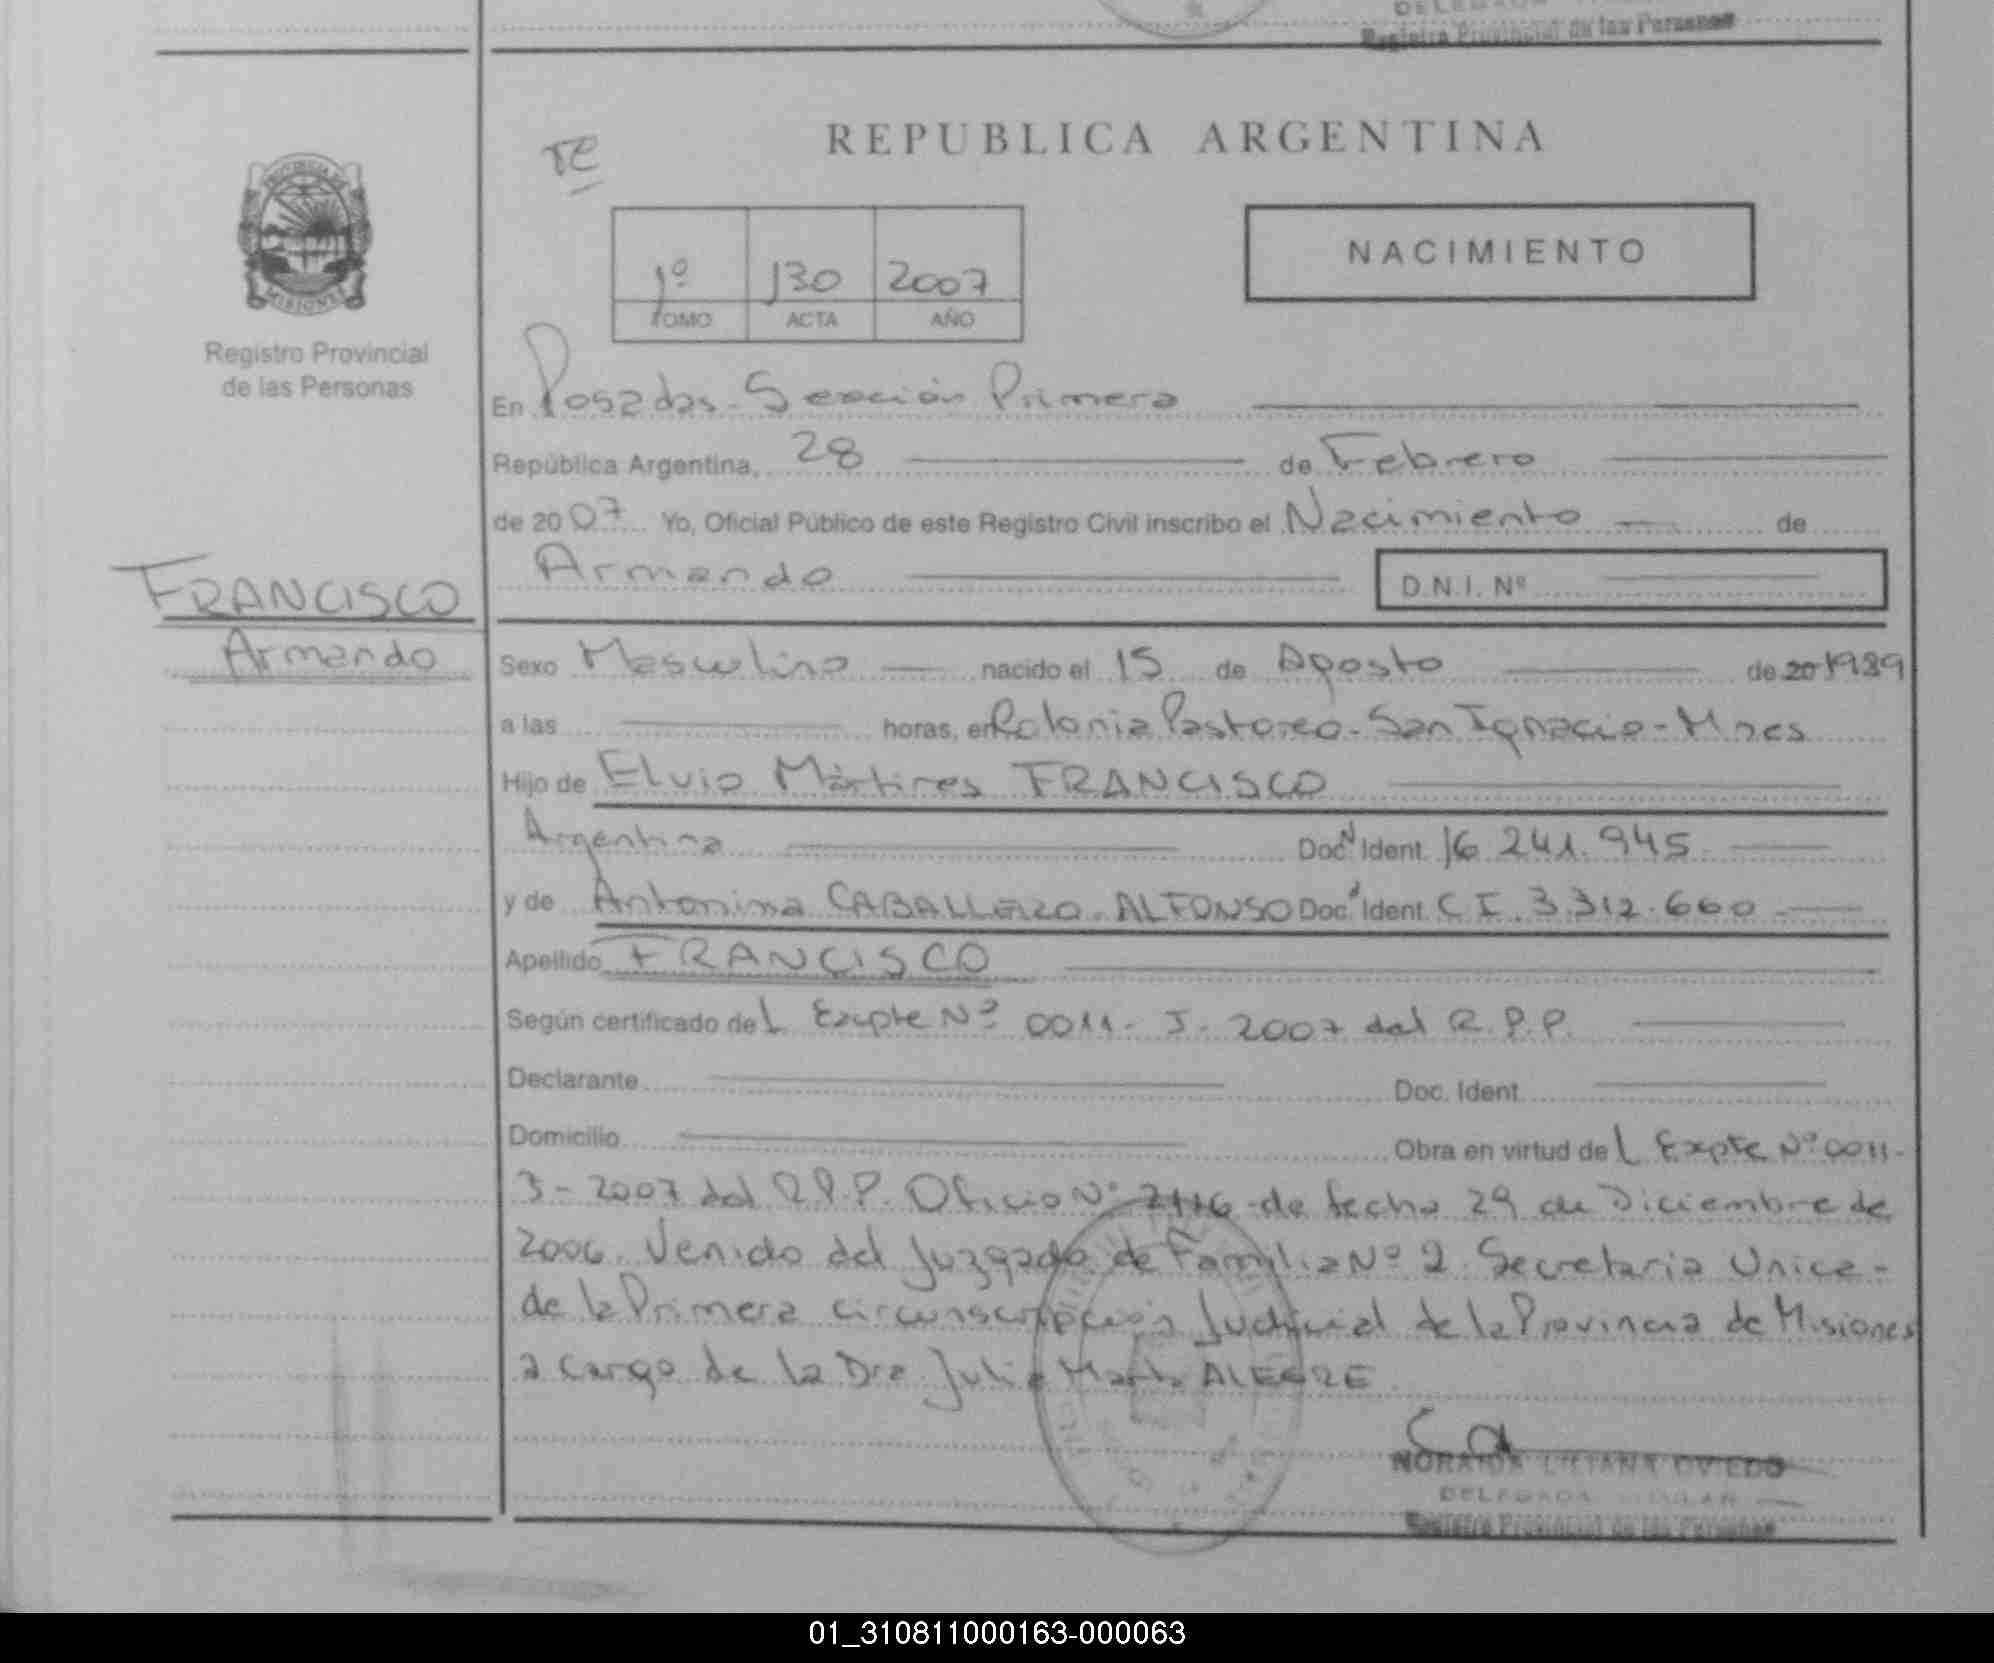 Registro Provincial de las Personas
REPUBLICA ARGENTINA
NACIMIENTO
1º 130 2007
TOMO ACTA AÑO
PROVINCIA DE
MISIONES
Registro Provincial
de las Personas
FRANCISCO
Armando
En Posadas - Sección Primera
República Argentina, 28 de Febrero
de 2007 Yo, Oficial Público de este Registro Civil inscribo el Nacimiento de
Armando D.N.I. Nº
Sexo Masculino nacido el 15 de Agosto de 20 1989
a las horas, en Colonia Pastoreo - San Ignacio - Mnes
Hijo de Elvio Mártires FRANCISCO
Argentina Doc Ident. 16.241.945
y de Antonina CABALLERO - ALFONSO Doc Ident C I. 3.312.660
Apellido FRANCISCO
Según certificado del Expte Nº 0011 - J - 2007 del R.P.P.
Declarante Doc. Ident.
Domicilio Obra en virtud del Expte Nº 0011-
J - 2007 del R.P.P. Oficio Nº de fecha 29 de Diciembre de
2006. Venido del Juzgado de Familia Nº 2 Secretaria Unica -
de la Primera circunscripción Judicial de la Provincia de Misiones
a cargo de la Dra. Julia Marta ALEGRE
NORAIDA LILIANA OVIEDO
DELEGADA TITULAR
Registro Provincial de las Personas
01_310811000163-000063